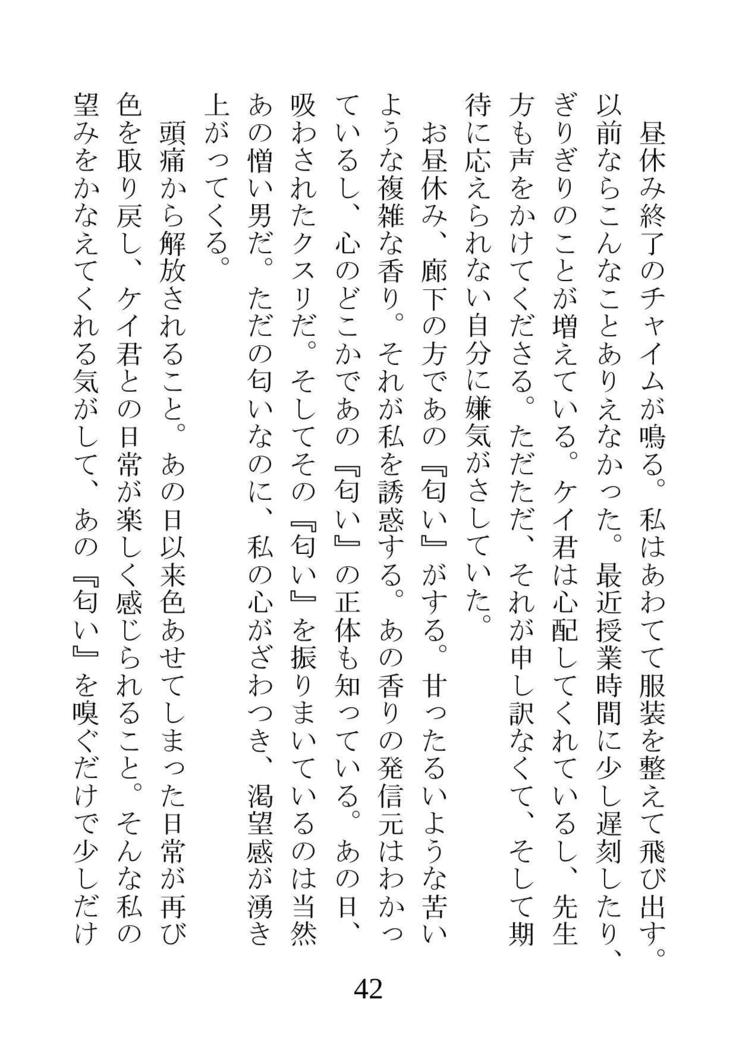 昼休み終了のチャイムが鳴る。私はあわてて服装を整えて飛び出す。
以前ならこんなことありえなかった。最近授業時間に少し遅刻したり、
ぎりぎりのことが増えている。ケイ君は心配してくれているし、先生
方も声をかけてくださる。ただただ、それが申し訳なくて、そして期
待に応えられない自分に嫌気がさしていた。
　お昼休み、廊下の方であの『匂い』がする。甘ったるいような苦い
ような複雑な香り。それが私を誘惑する。あの香りの発信元はわかっ
ているし、心のどこかであの『匂い』の正体も知っている。あの日、
吸わされたクスリだ。そしてその『匂い』を振りまいているのは当然
あの憎い男だ。ただの匂いなのに、私の心がざわつき、渇望感が湧き
上がってくる。
　頭痛から解放されること。あの日以来色あせてしまった日常が再び
色を取り戻し、ケイ君との日常が楽しく感じられること。そんな私の
望みをかなえてくれる気がして、あの『匂い』を嗅ぐだけで少しだけ
42